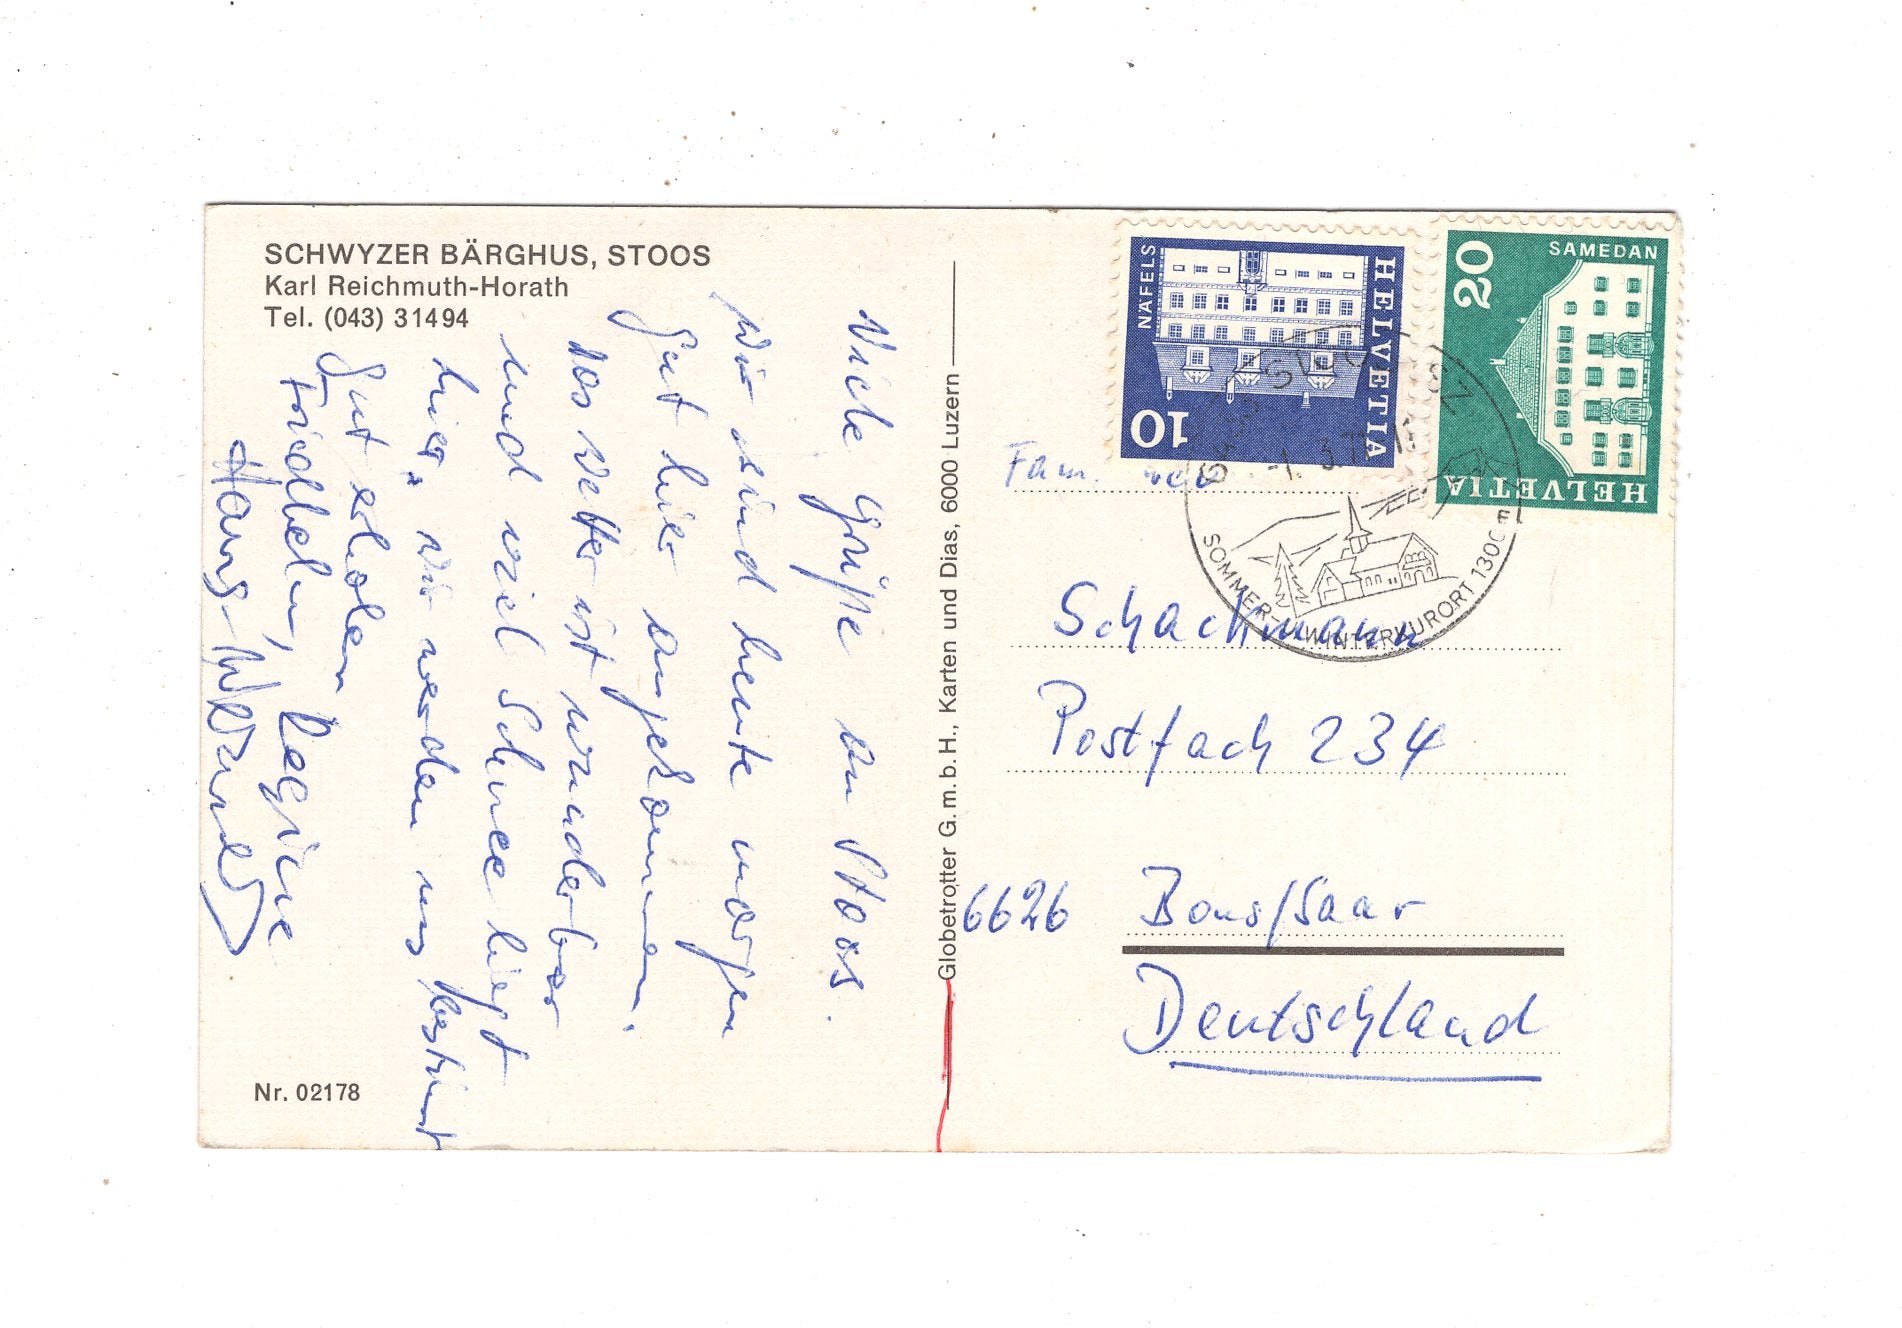 SCHWYZER BÄRGHUS, STOOS
Karl Reichmuth-Horath
Tel. (043) 31494
Viele Grüße an Stoos.
Wir sind heute morgen
gut hier angekommen.
das Wetter ist wunderbar
und viel Schnee liegt
hier. Wir werden uns bestimmt
gut erholen
Friedhelm, Regine
Hans-Werner
Nr. 02178
Globetrotter G.m.b.H., Karten und Dias, 6000 Luzern
NÄFELS
HELVETIA
10
20
SAMEDAN
HELVETIA
SOMMER- WINTERKURORT 1300
Fam.
Schachmann
Postfach 234
6626 Bous/Saar
Deutschland